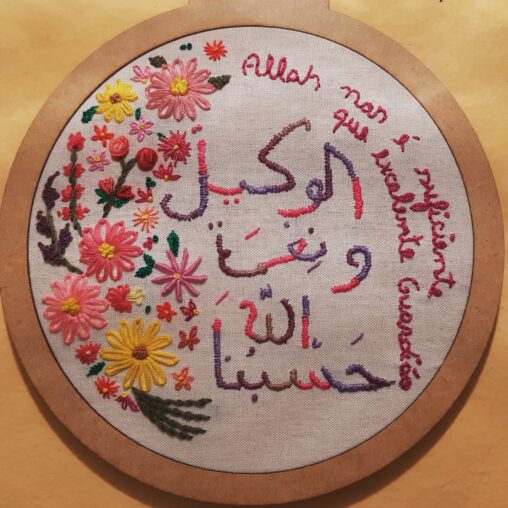 Allah nos é suficiente
que excelente Guardião
حَسْبُنَا
اللّٰهُ
وَنِعْمَ
الوكيل